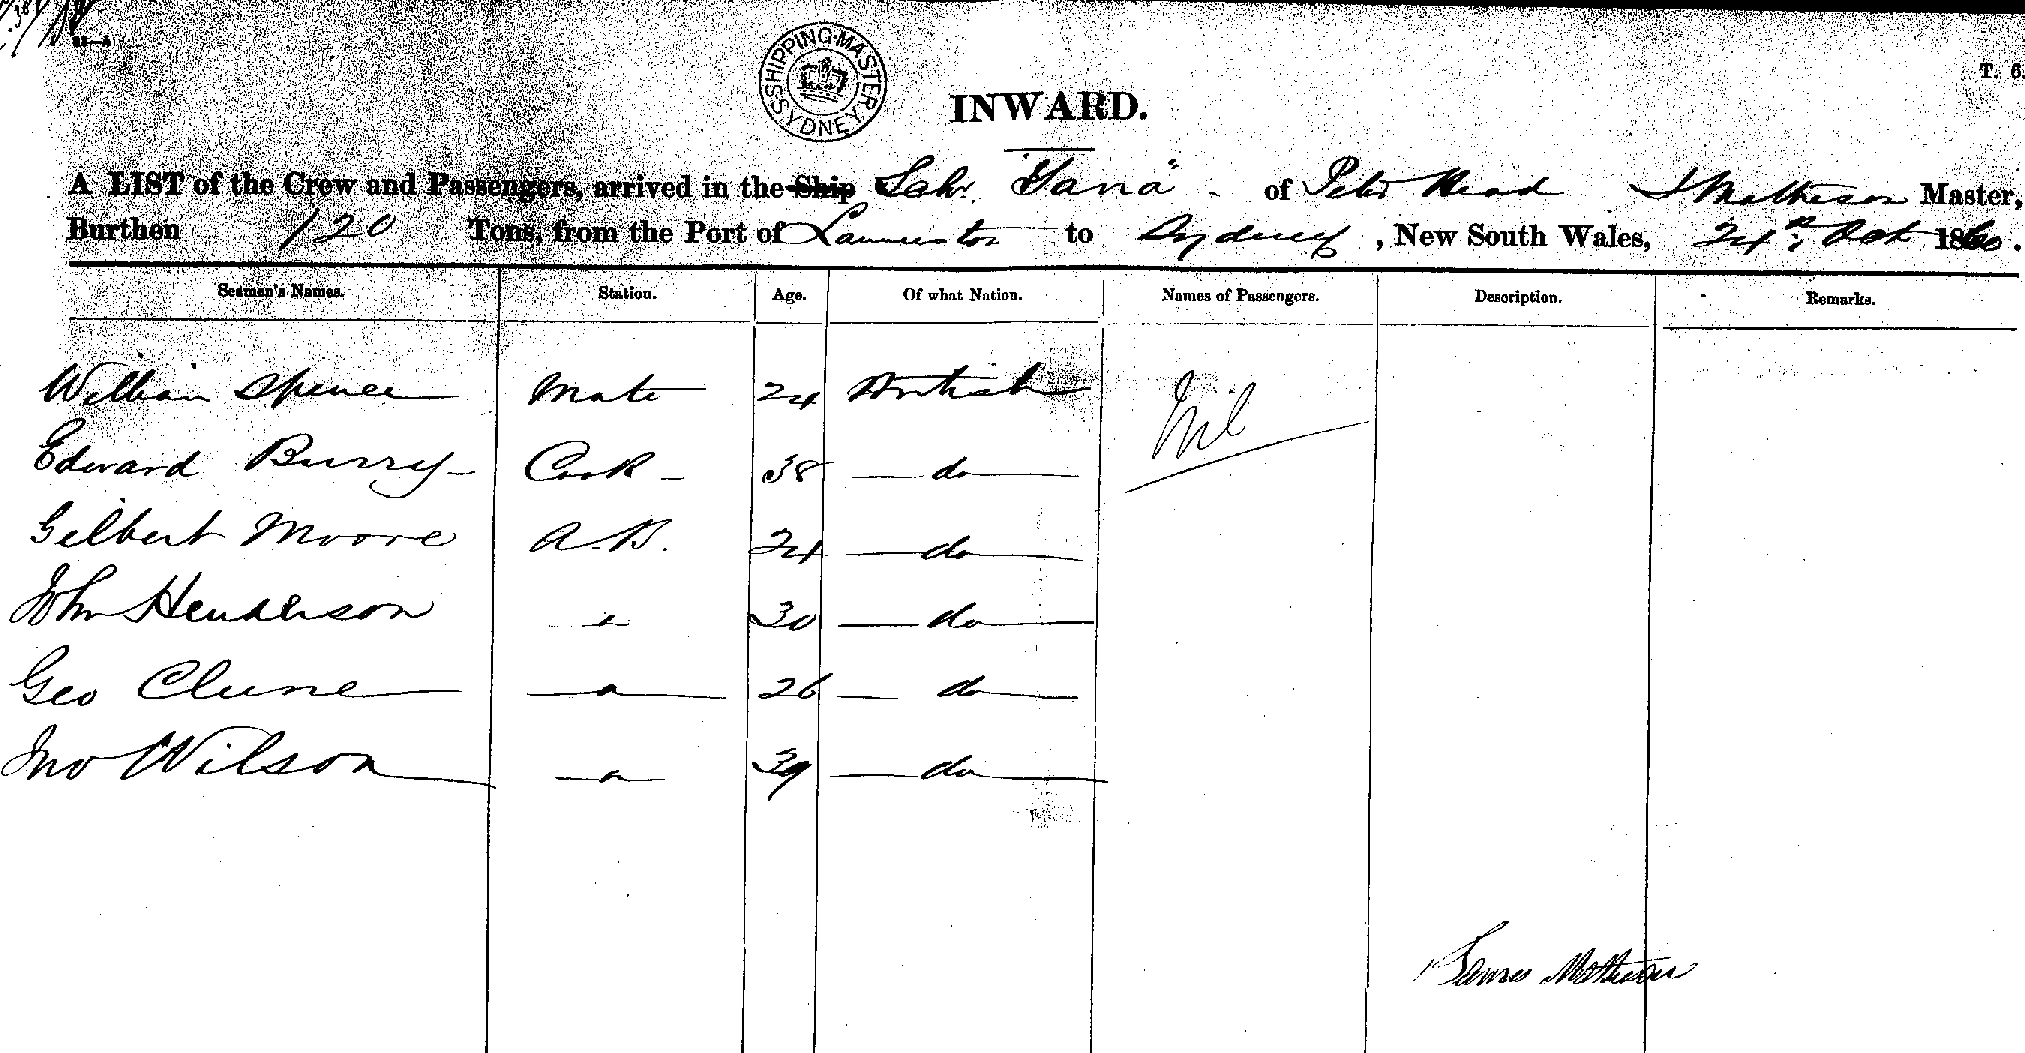 SHIPPING MASTER SYDNEY
T. 6.
INWARD.
A LIST of the Crew and Passengers, arrived in the Ship Schr. "Tana" of Peter Head J Matheson Master,
Burthen 120 Tons, from the Port of Launceston to Sydney, New South Wales, 24th Oct 1860.
Seamen's Names. Station. Age. Of what Nation. Names of Passengers. Description. Remarks.
William Spence Mate 24 British Nil
Edward Burry Cook 38 do
Gilbert Moore A.B. 24 do
John Henderson " 30 do
Geo Clune " 26 do
Jno Wilson " 39 do
James Matheson